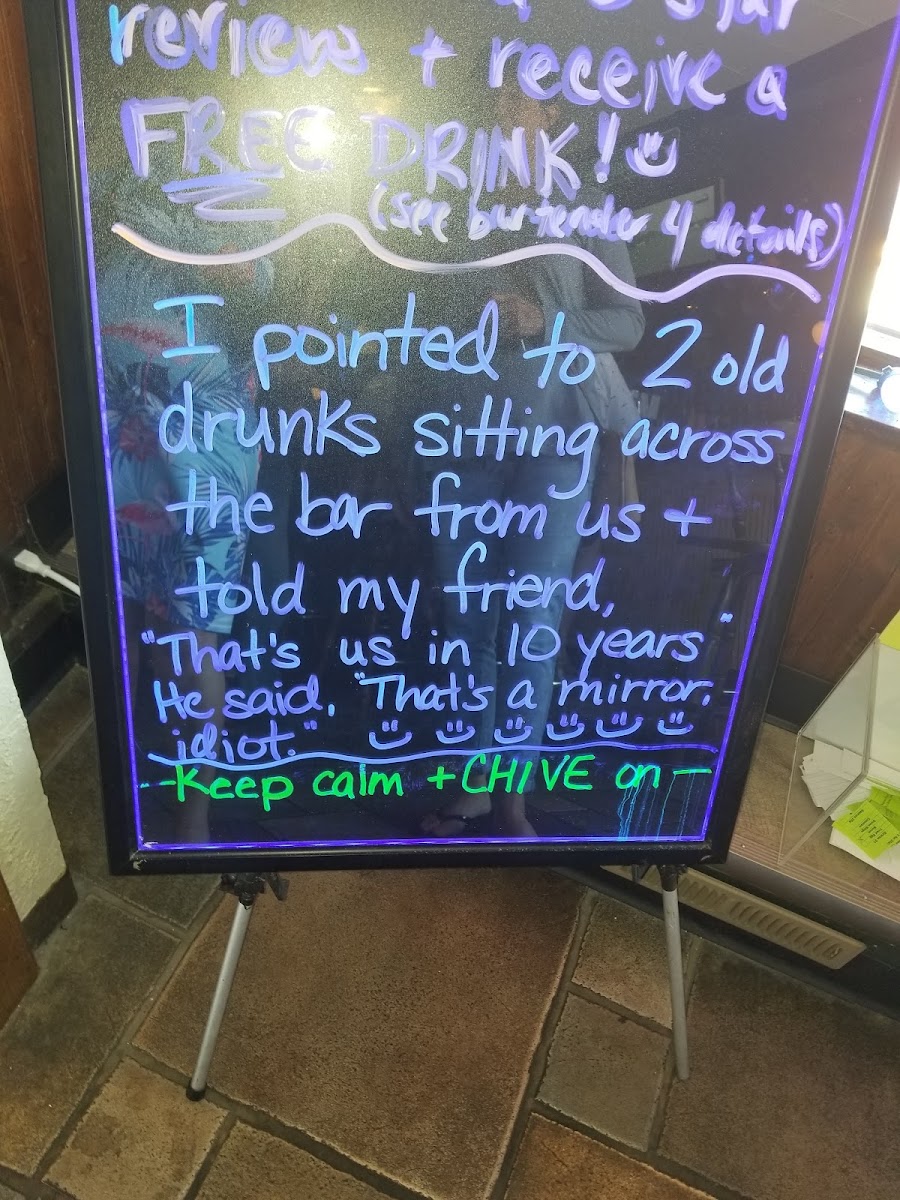 star
review + receive a
FREE DRINK!
(see bartender 4 details)
I pointed to 2 old
drunks sitting across
the bar from us +
told my friend,
"That's us in 10 years"
He said, "That's a mirror,
idiot."
-Keep calm + CHIVE on-